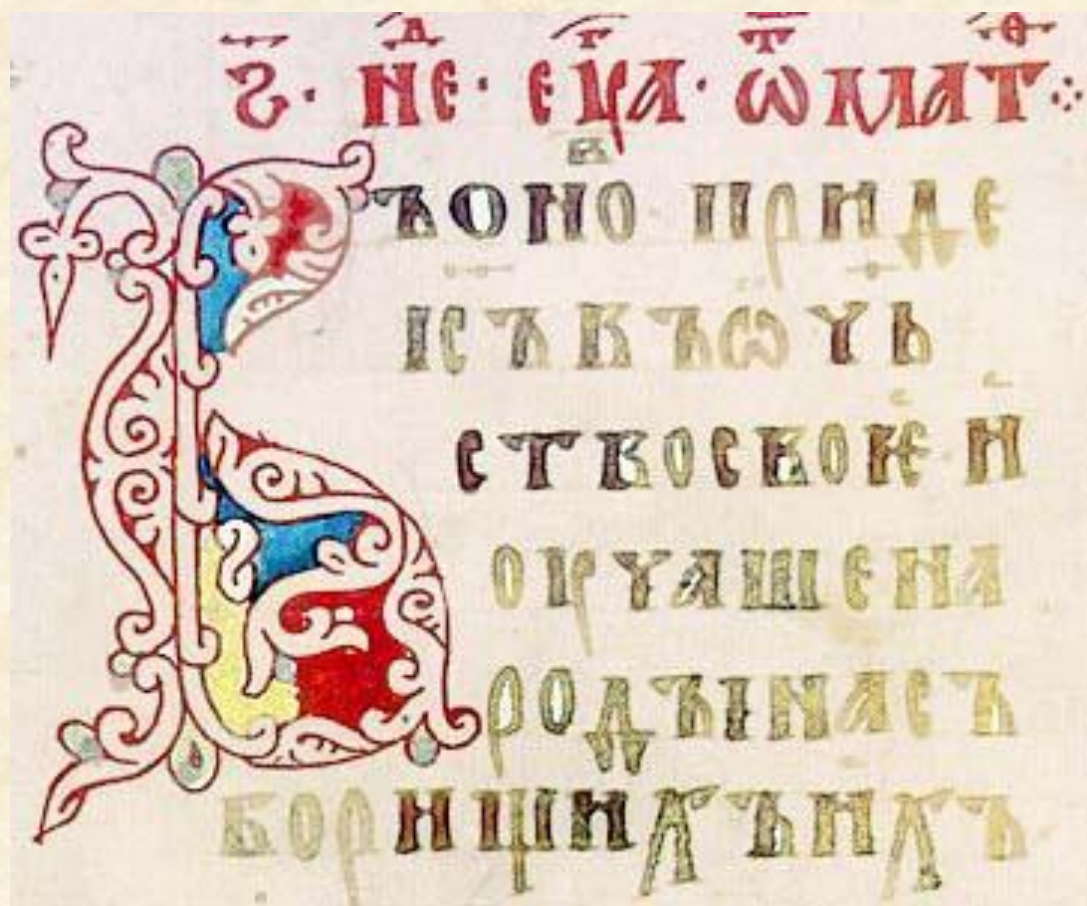 З҃ · НЕⷣ · ЕѴⷢА · Ѿ МАТѲ ⁘
Въ оноⷡ · приде
іс҃ъ въ ѡчь
ство своѥ · и
оучаше на
родъі на съ
борищихъ ихъ